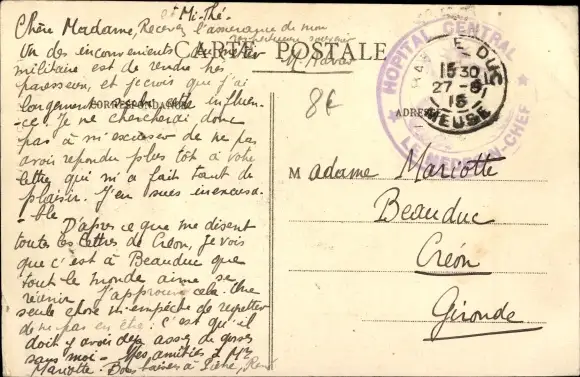 et Mi-Thé.
Chère Madame, Recevez l'assurance de mon
respectueux souvenir
Un des inconvenients du métier
militaire est de rendre très
paresseux, et je crois que j'ai
largement subi cette influen-
-ce. Je ne chercherai donc
pas à m'excuser de ne pas
avoir repondu plus tôt à votre
lettre qui m'a fait tant de
plaisir. J'en suis inexcusa-
-ble
D'après ce que me disent
toutes les lettres de Créon, je vois
que c'est à Beauduc que
tout le monde aime se
réunir. J'approuve cela. Une
seule chose m'empêche de regretter
de ne pas en être. C'est qu'il
doit y avoir déjà assez de gosses
sans moi - Mes amitiés à Mr
Mariotte. Bons baisers à Pierre, René
CARTE POSTALE
CORRESPONDANCE
ADRESSE
8€
HOPITAL CENTRAL
LE MEDECIN-CHEF
BAR LE DUC
15 30
27-8
15
MEUSE
Madame Mariotte
Beauduc
Créon
Gironde